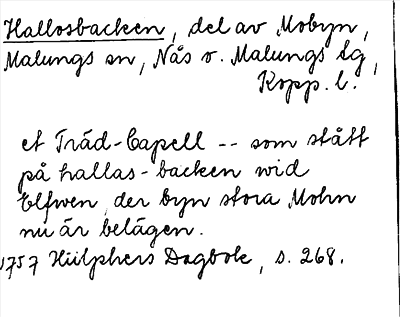 Hallosbacken, del av Mobyn,
Malungs sn, Nås o. Malungs tg,
Kopp. l.
et Träd-Capell -- som stått
på hallas-backen wid
Elfwen, der byn stora Mohn
nu är belägen.
1757 Hülphers Dagbok, s. 268.